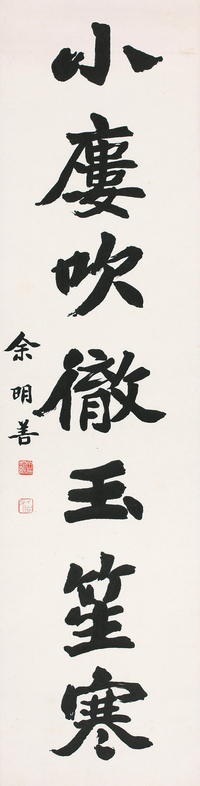 小廔吹徹玉笙寒
余明善